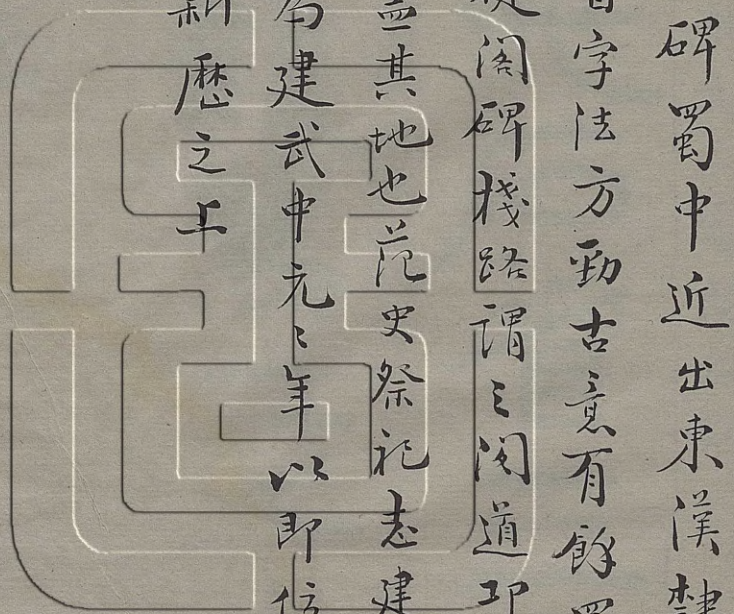 碑蜀中近出東漢隸
字法方勁古意有餘
閣碑棧路謂之閣道邛
其地也范史祭祀志建
建武中元〻年以即位
新歷之上